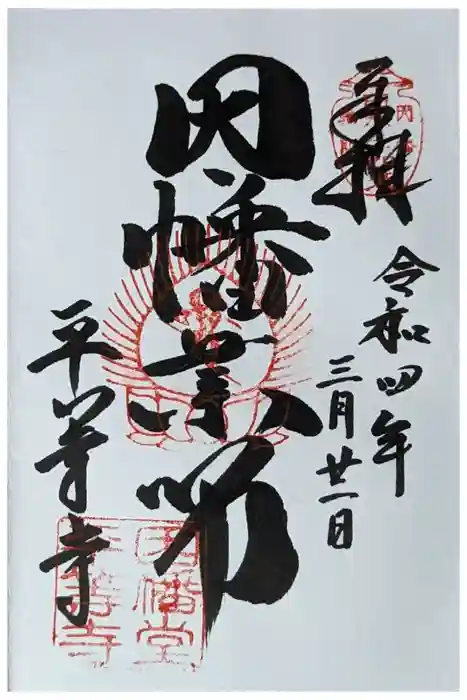 奉拝
令和四年
三月廿一日
因幡薬師
平等寺
因幡堂
平等寺